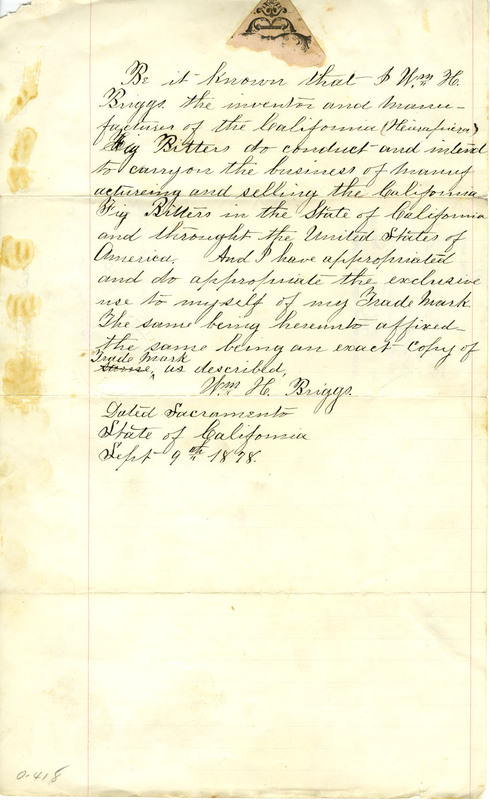 Be it known that I Wm H.
Briggs. the inventor and manu-
facturer of the California (Heirapicra)
Fig Bitters do conduct and intend
to carry on the business of manuf
actureing and selling the California
Fig Bitters in the State of California
and throught the United States of
America. And I have appropriated
and do appropriate the exclusive
use to myself of my Trade Mark
The same being hereunto affixed
the same being an exact copy of
Trade Mark
same, as described,
Wm H. Briggs.
Dated Sacramento
State of California
Sept 9th 1878.
0-418